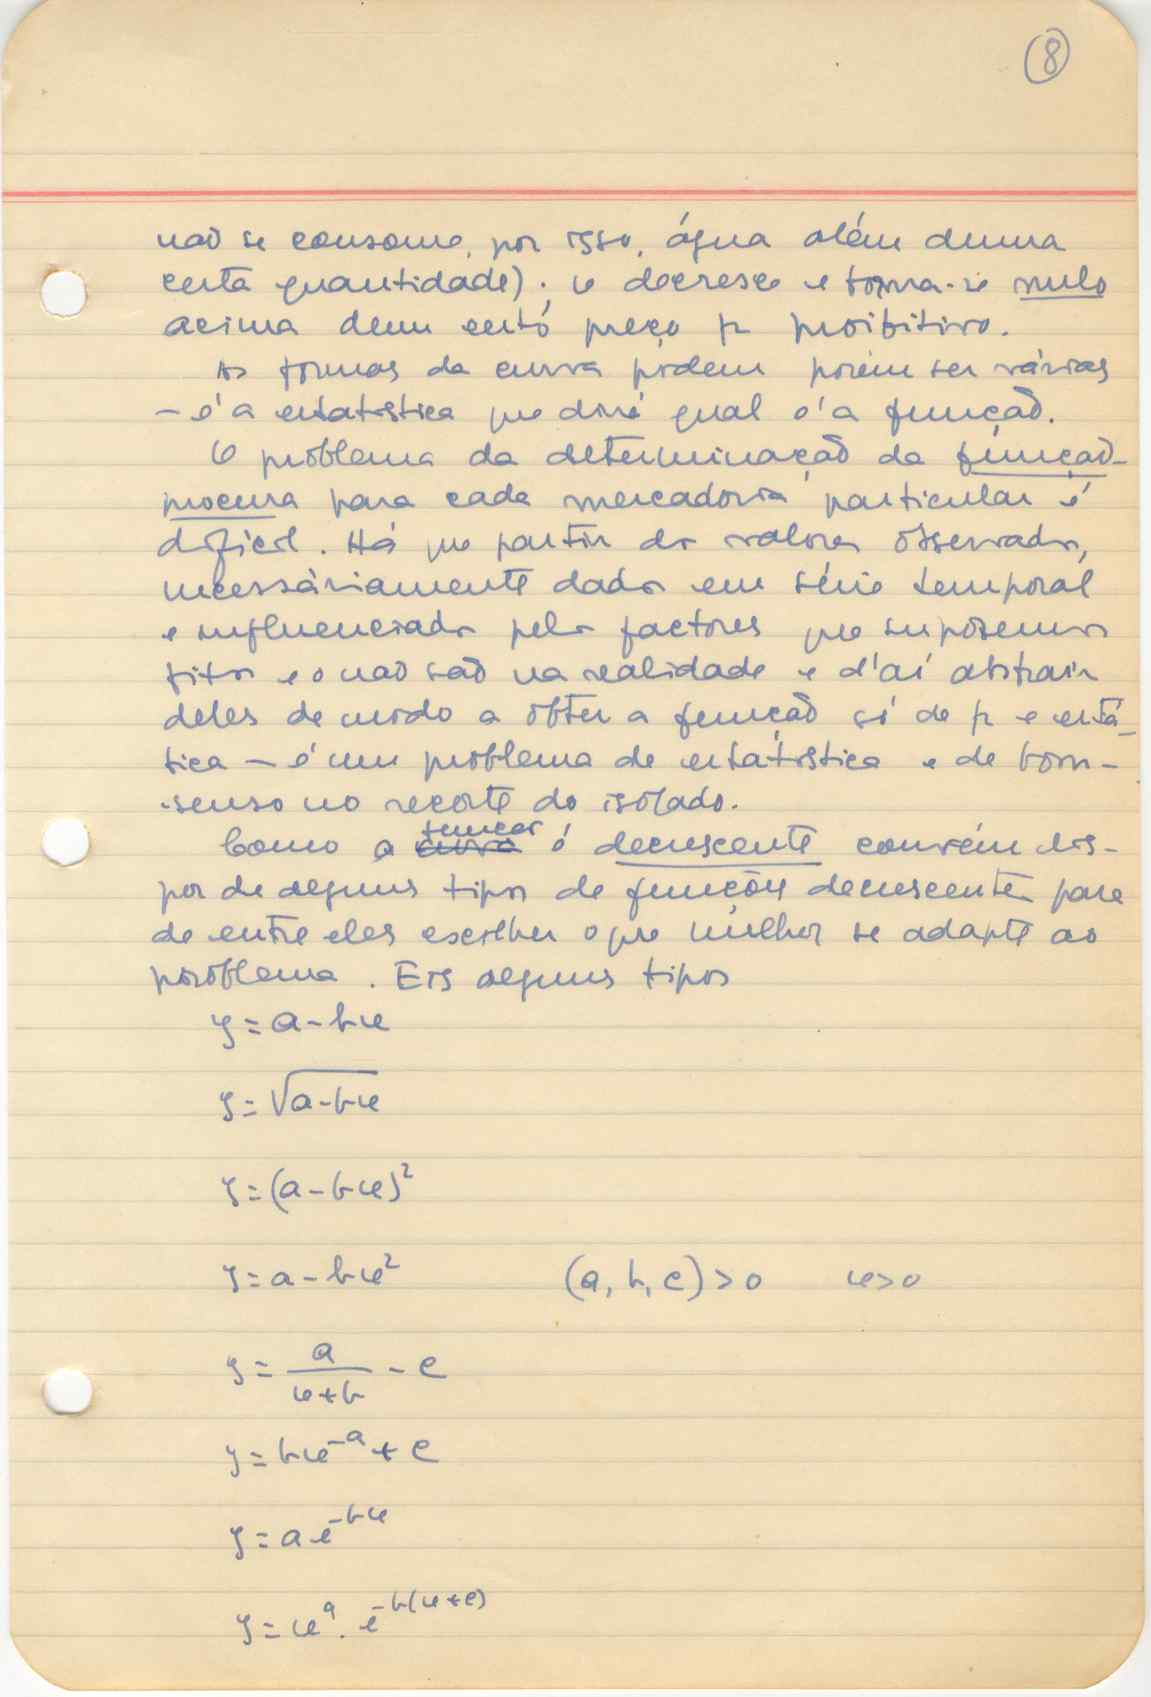 8
não se consome, por isso, água além duma
certa quantidade); e decresce e torna-se nulo
acima dum certo preço p proibitivo.
As formas da curva podem porém ser várias
— é a estatística que dirá qual é a função.
O problema da determinação da função-
procura para cada mercadoria particular é
difícil. Há que partir dos valores observados,
necessàriamente dados em série temporal
e influenciados pelos factores que supusemos
fixos e o não são na realidade e d'aí abstrair
deles de modo a obter a função só de p e está-
tica — é um problema de estatística e de bom-
-senso no recorte do isolado.
Como a função é decrescente convém dis-
por de alguns tipos de funções decrescentes para
de entre eles escolher o que melhor se adapte ao
problema. Eis alguns tipos
y = a - bx
y = √(a - bx)
y = (a - bx)²
y = a - bx² (a, b, c) > 0 x > 0
y = a/(x+b) - c
y = bx^-a + c
y = a e^-bx
y = x^a . e^-b(x+c)